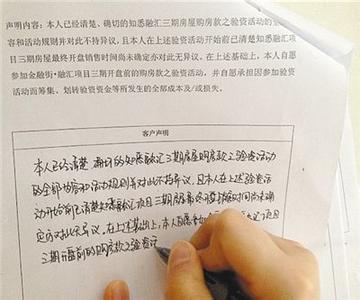 声明内容：本人已经清楚、确切的知悉融汇三期房屋购房款之验资活动的
容和活动规则并对此不持异议，且本人在上述验资活动开始前已清楚知悉融汇
目三期房屋最终开盘销售时间尚未确定亦对此无异议，在上述基础上，本人自愿
参加金融街·融汇项目三期开盘前的购房款之验资活动，并自愿承担因参加验资
活动而筹集、划转验资资金等所发生的全部成本及/或损失。
客户声明
本人已经清楚、确切的知悉融汇三期房屋购房款之验资活动
的全部内容和活动规则并对此不持异议，且本人在上述验资活
动开始前已清楚知悉融汇项目三期房屋最终开盘销售时间尚未确
定亦对此无异议，在上述基础上，本人自愿参加 项目
三期开盘前的购房款之验资活